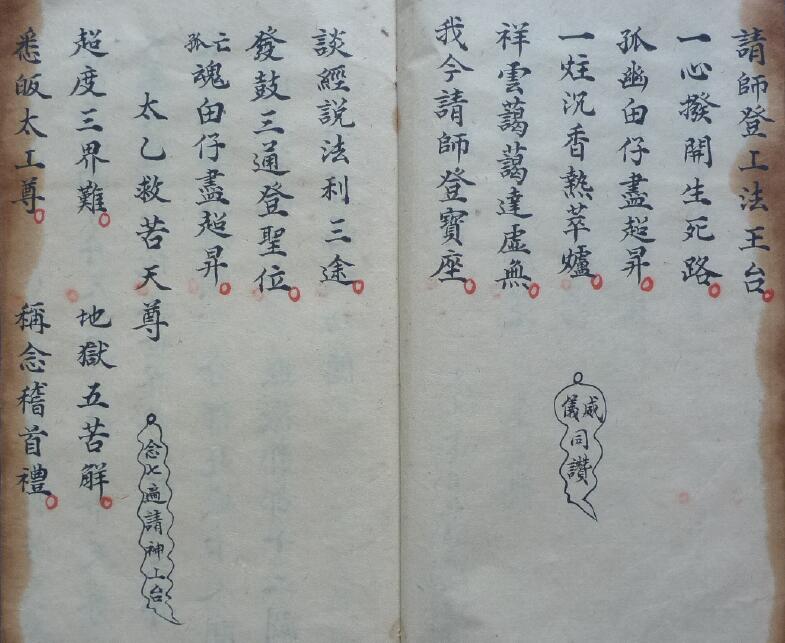 請師登工法王台
一心撥開生死路
孤幽甶仔盡超昇
一炷沉香熱萃爐
威儀同讚
祥雲藹藹達虛無
我今請師登寶座
談經説法利三途
發鼓三通登聖位
亡孤魂甶仔盡超昇
太乙救苦天尊 念七遍請神上台
超度三界難 地獄五苦解
悉皈太工尊 稱念稽首禮